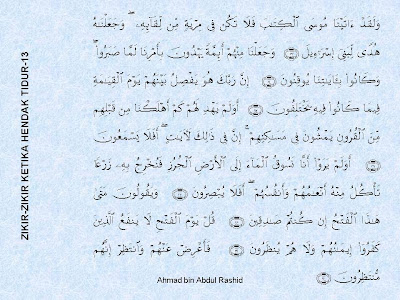 وَلَقَدْ ءَاتَيْنَا مُوسَى ٱلْكِتَـٰبَ فَلَا تَكُن فِى مِرْيَةٍ مِّن لِّقَآئِهِۦ ۖ وَجَعَلْنَـٰهُ
هُدًى لِّبَنِىٓ إِسْرَٰٓءِيلَ ﴿٢٣﴾ وَجَعَلْنَا مِنْهُمْ أَئِمَّةً يَهْدُونَ بِأَمْرِنَا لَمَّا صَبَرُوا۟ ۖ
وَكَانُوا۟ بِـَٔايَـٰتِنَا يُوقِنُونَ ﴿٢٤﴾ إِنَّ رَبَّكَ هُوَ يَفْصِلُ بَيْنَهُمْ يَوْمَ ٱلْقِيَـٰمَةِ
فِيمَا كَانُوا۟ فِيهِ يَخْتَلِفُونَ ﴿٢٥﴾ أَوَلَمْ يَهْدِ لَهُمْ كَمْ أَهْلَكْنَا مِن قَبْلِهِم
مِّنَ ٱلْقُرُونِ يَمْشُونَ فِى مَسَـٰكِنِهِمْ ۚ إِنَّ فِى ذَٰلِكَ لَـَٔايَـٰتٍ ۖ أَفَلَا يَسْمَعُونَ
﴿٢٦﴾ أَوَلَمْ يَرَوْا۟ أَنَّا نَسُوقُ ٱلْمَآءَ إِلَى ٱلْأَرْضِ ٱلْجُرُزِ فَنُخْرِجُ بِهِۦ زَرْعًا
تَأْكُلُ مِنْهُ أَنْعَـٰمُهُمْ وَأَنفُسُهُمْ ۖ أَفَلَا يُبْصِرُونَ ﴿٢٧﴾ وَيَقُولُونَ مَتَىٰ
هَـٰذَا ٱلْفَتْحُ إِن كُنتُمْ صَـٰدِقِينَ ﴿٢٨﴾ قُلْ يَوْمَ ٱلْفَتْحِ لَا يَنفَعُ ٱلَّذِينَ
كَفَرُوٓا۟ إِيمَـٰنُهُمْ وَلَا هُمْ يُنظَرُونَ ﴿٢٩﴾ فَأَعْرِضْ عَنْهُمْ وَٱنتَظِرْ إِنَّهُم
مُّنتَظِرُونَ ﴿٣٠﴾
ZIKIR-ZIKIR KETIKA HENDAK TIDUR-13
Ahmad bin Abdul Rashid